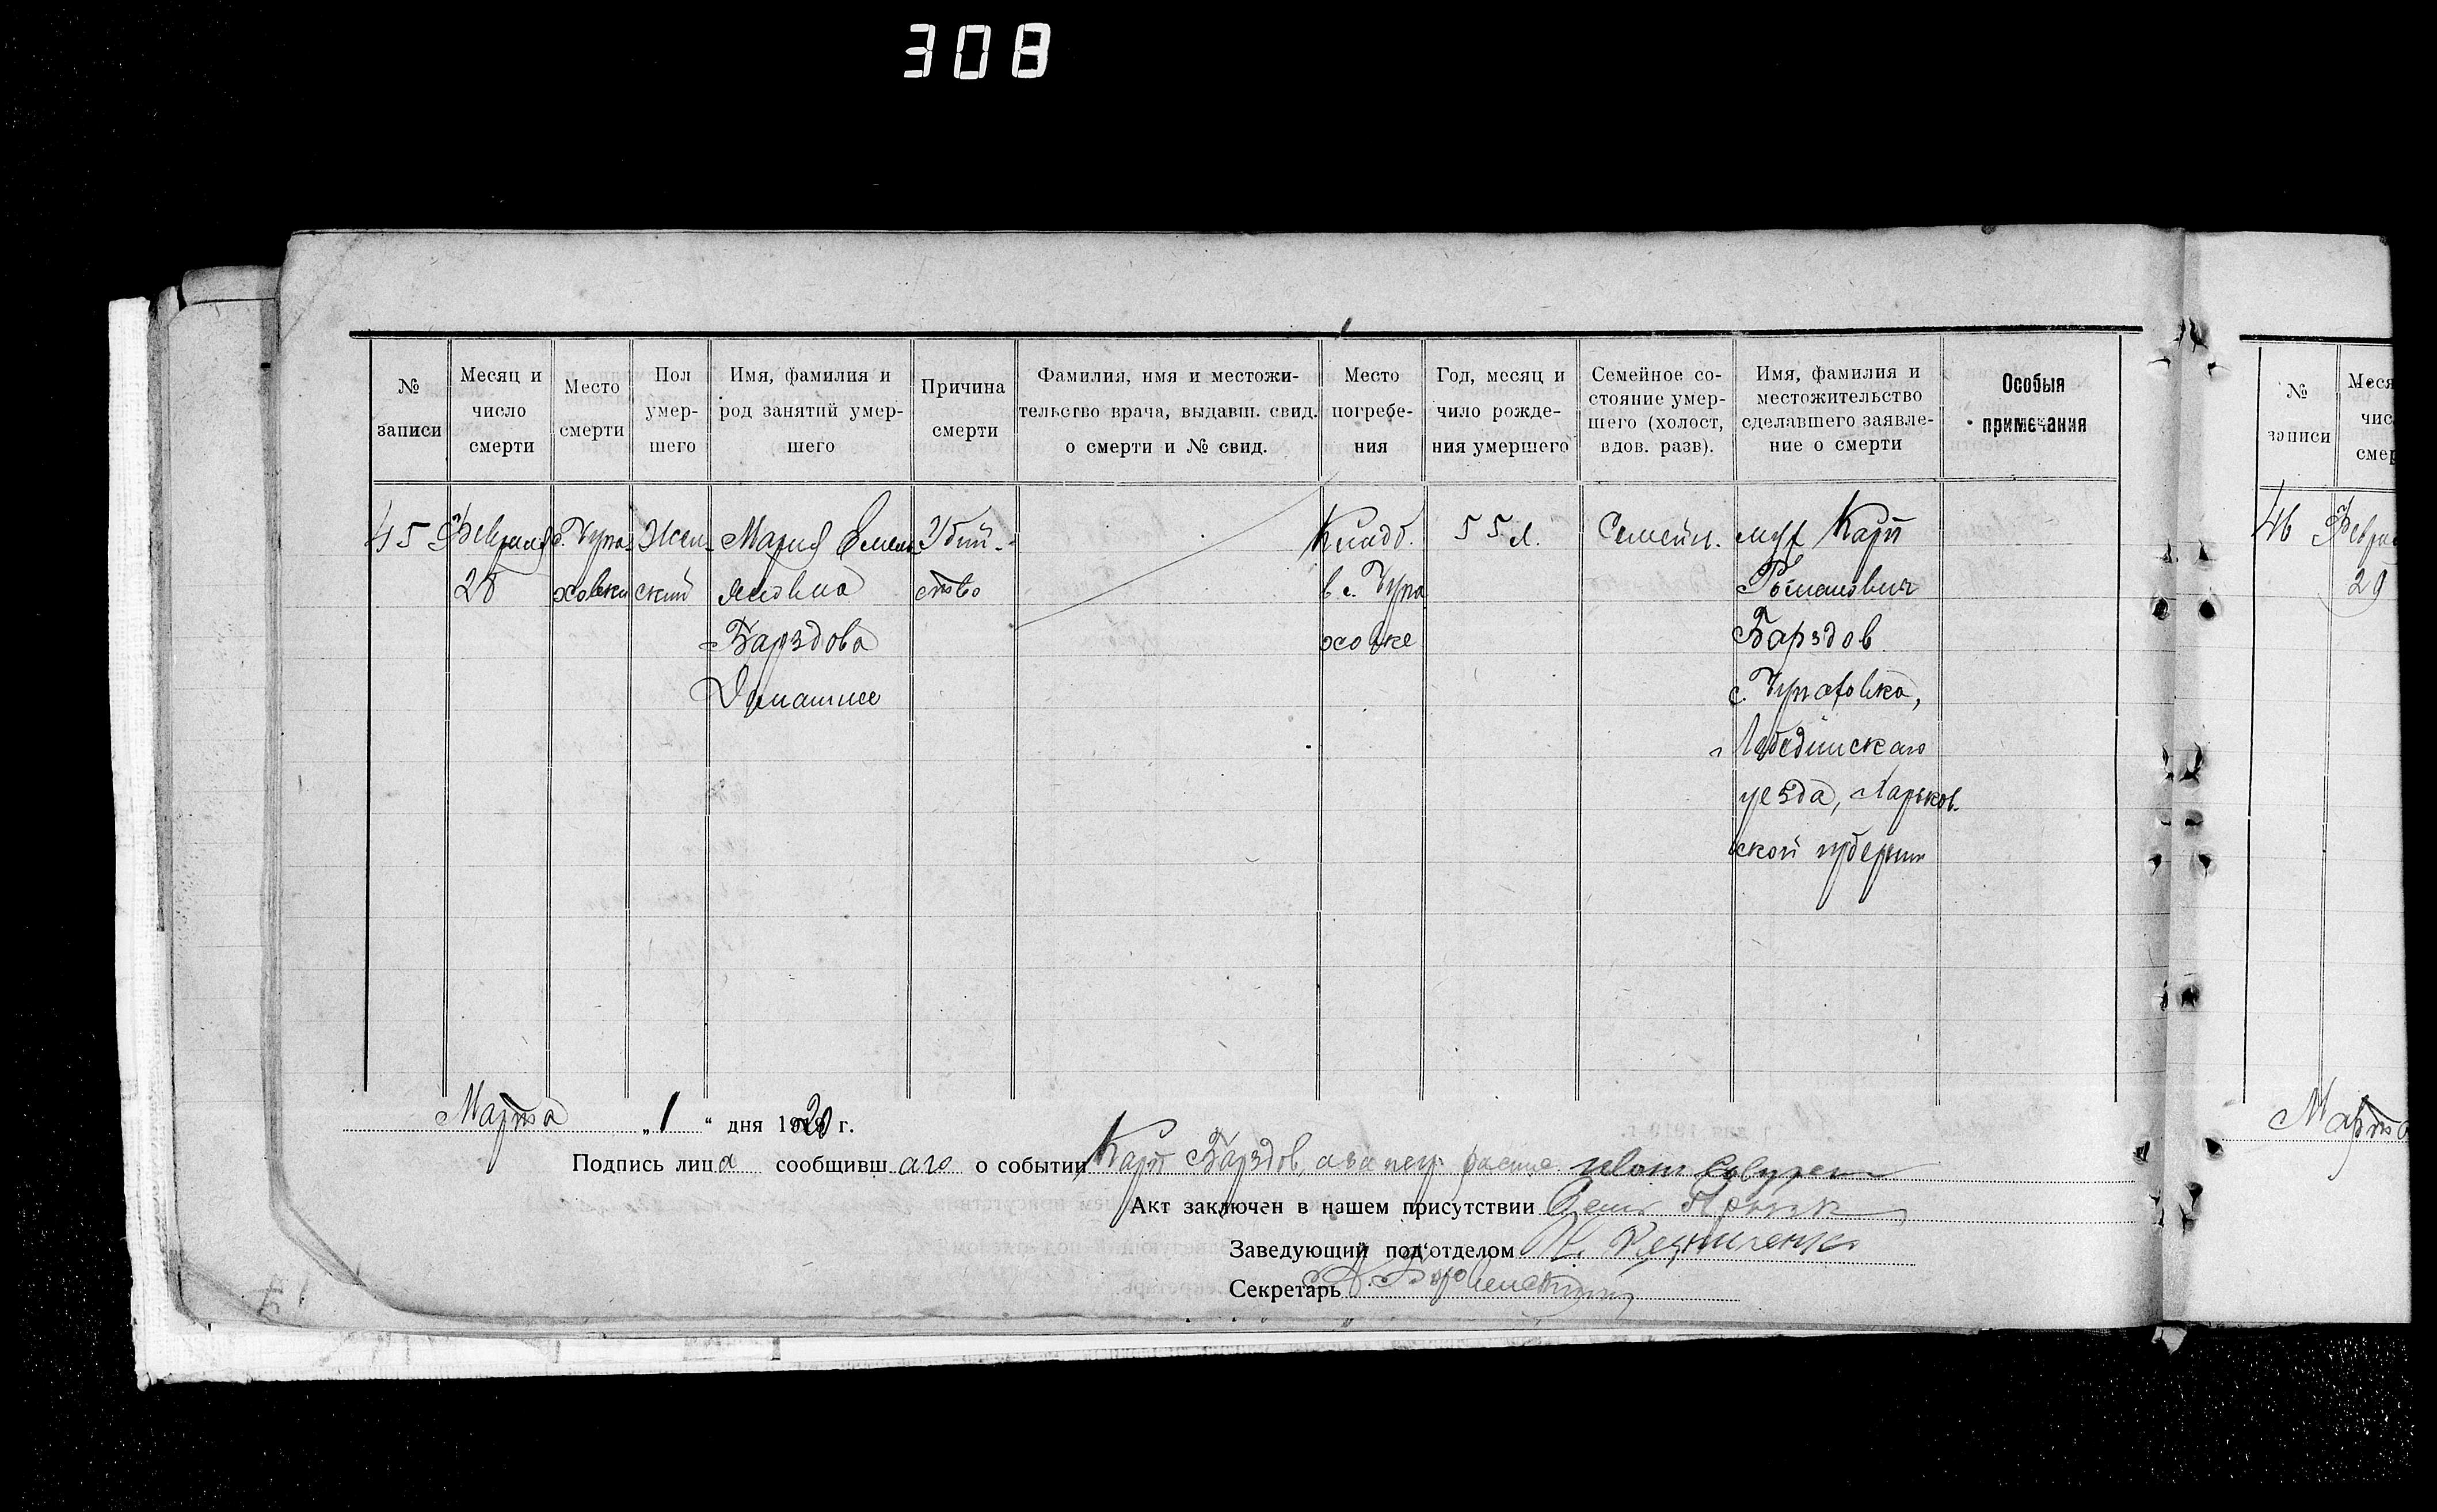 308
№ записи
Месяц и число смерти
Место смерти
Пол умер-шего
Имя, фамилия и род занятий умер-шего
Причина смерти
Фамилия, имя и местожи-тельство врача, выдавш. свид. о смерти и № свид.
Место погребе-ния
Год, месяц и чило рожде-ния умершего
Семейное со-стояние умер-шего (холост, вдов. разв).
Имя, фамилия и местожительство сделавшего заявле-ние о смерти
Особыя примечания
45
Февраля
28
с. Чупа-
ховки
Жен-
ский
Мария Емель-
яновна
Барздова
Домашнее
Убий-
ство
Кладб.
в с. Чупа
ховке
55 л.
Семейн.
муж Карп
Романович
Барздов
с. Чупаховка,
Лебединского
уезда, Харьков-
ской губернии
Марта „1“ дня 1920 г.
Подпись лица сообщившаго о событии Карп Барздов, а за
Акт заключен в нашем присутствии
Заведующий под'отделом
Секретарь
№
записи
Меся
чис
смер
46
Февра
29
Марта